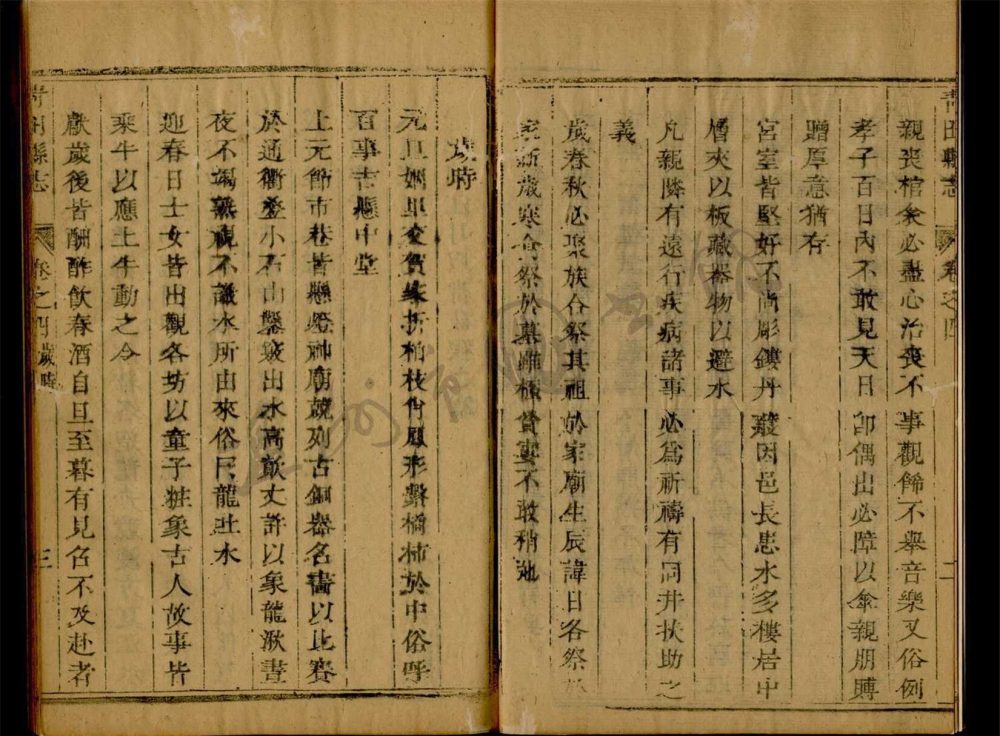 青田縣志 卷之四 二
親喪棺衾必盡心治喪不事觀飾不舉音樂又俗例
孝子百日內不敢見天日卽偶出必障以傘親朋賻
贈厚意猶存
宮室皆堅好不尚彫鏤丹雘因邑長患水多樓居中
層夾以板藏器物以避水
凡親隣有遠行疾病諸事必為祈禱有同井扶助之
義
歲春秋必聚族合祭其祖於家廟生辰諱日各祭
家新歲寒食祭於墓雖極貧窶不敢稍弛
歲時
元旦姻里交賀 折柏枝作鳳形繫橘柿於中俗呼
百事吉懸中堂
上元節市巷皆懸燈神廟競列古銅器名畵以比賽
於通衢疊小石山鑿竅出水高數丈許以象龍湫晝
夜不竭 觀不識水所由來俗曰龍吐水
迎春日士女皆出觀各坊以童子粧象古人故事皆
乘牛以應土牛動之令
獻歲後皆酬酢飲春酒自旦至暮有見召不及赴者
青田縣志 卷之四 歲時 三